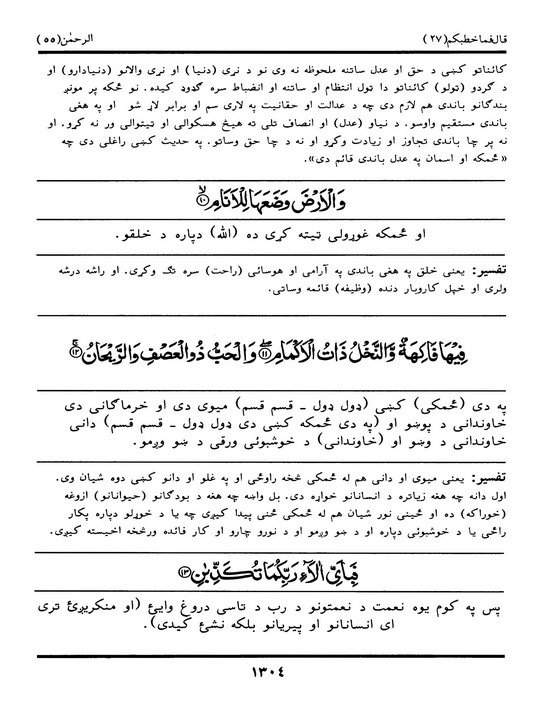 قال‌فماخطبکم(۲۷) الرحمٰن(۵۵)
کائناتو کښی د حق او عدل ساتنه ملحوظه نه وی نو د نړی (دنیا) او نړی والانو (دنیادارو) او
د ګردو (ټولو) کائناتو دا ټول انتظام او ساتنه او انضباط سره ګډوډ کیده. نو ځکه پر مونږ
بندګانو باندی هم لازم دی چه د عدالت او حقانیت په لاری سم او برابر لاړ شو او په هغی
باندی مستقیم واوسو. د نیاو (عدل) او انصاف تلی ته هیڅ هسکوالی او ټیټوالی ور نه کړو. او
نه پر چا باندی تجاوز او زیادت وکړو او نه د چا حق وساتو. په حدیث کښی راغلی دی چه
«ځمکه او اسمان په عدل باندی قائم دی».
وَالْاَرْضَ وَضَعَهَا لِلْاَنَامِ ۙ﴿۱۰﴾
او ځمکه غوړولی ټیټه کړی ده (الله) دپاره د خلقو.
تفسیر: یعنی خلق په هغی باندی په آرامی او هوسائی (راحت) سره تګ وکړی. او راشه درشه
ولری او خپل کاروبار دنده (وظیفه) قائمه وساتی.
فِيْهَا فَاكِهَةٌ وَّالنَّخْلُ ذَاتُ الْاَكْمَامِ ۖ﴿۱۱﴾ وَالْحَبُّ ذُو الْعَصْفِ وَالرَّيْحَانُ ۚ﴿۱۲﴾
په دی (ځمکی) کښی (ډول ډول ـ قسم قسم) میوی دی او خرماګانی دی
خاوندانی د پوښو او (په دی ځمکه کښی دی ډول ډول ـ قسم قسم) دانی
خاوندانی د وښو او (خاوندانی) د خوشبوئی ورقی د ښو وږمو.
تفسیر: یعنی میوی او دانی هم له ځمکی څخه راوځی او په غلو او دانو کښی دوه شیان وی.
اول دانه چه هغه زیاتره د انسانانو خواړه دی. بل واښه چه هغه د بودګانو (حیوانانو) ازوغه
(خوراکه) ده او ځینی نور شیان هم له ځمکی ځنی پیدا کیږی چه یا د خوړلو دپاره پکار
راځی یا د خوشبوئی دپاره او د ښو وږمو او د نورو چارو او کار فائده ورڅخه اخیسته کیږی.
فَبِاَيِّ اٰلَآءِ رَبِّكُمَا تُكَذِّبٰنِ ﴿۱۳﴾
پس په کوم یوه نعمت د نعمتونو د رب د تاسی دروغ وایئ (او منکریږئ تری
ای انسانانو او پیریانو بلکه نشئ کیدی).
۱۳۰٤